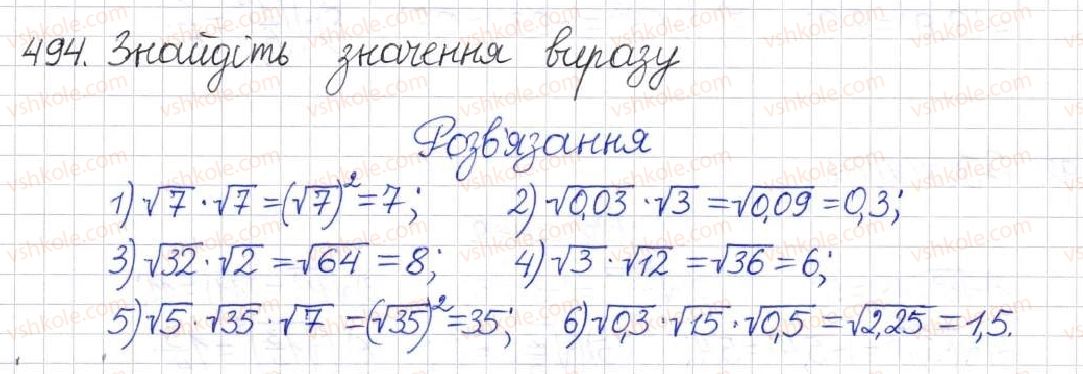 494. Знайдіть значення виразу
Розв'язання
1) √7 · √7 = (√7)² = 7; 2) √0,03 · √3 = √0,09 = 0,3;
3) √32 · √2 = √64 = 8; 4) √3 · √12 = √36 = 6;
5) √5 · √35 · √7 = (√35)² = 35; 6) √0,3 · √15 · √0,5 = √2,25 = 1,5.